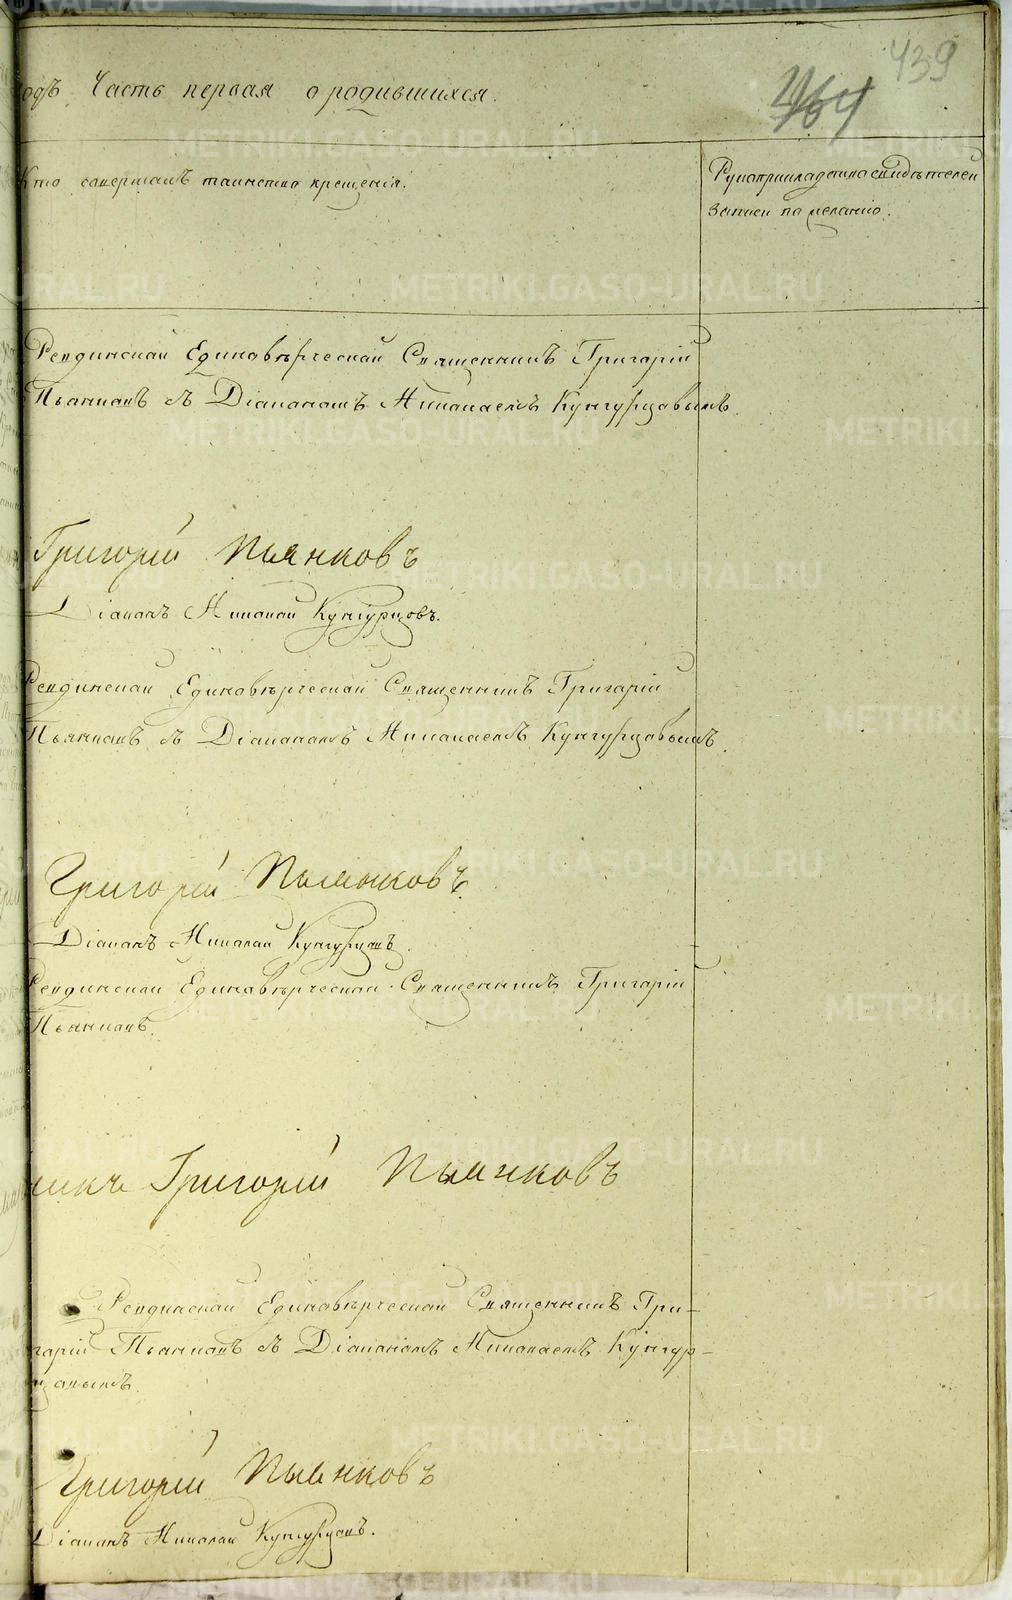 439
464
одъ Часть первая о родившихся.
Кто совершалъ таинство крещенія.
Рукоприкладство свидѣтелей
записи по желанію.
Ревдинской Единовѣрческой Священникъ Григорій
Пьянковъ съ Діакономъ Николаемъ Кунгурцовымъ.
Григорій Пьянковъ
Діаконъ Николай Кунгурцовъ.
Ревдинской Единовѣрческой Священникъ Григорій
Пьянковъ съ Діакономъ Николаемъ Кунгурцовымъ.
Григорій Пьянковъ
Діаконъ Николай Кунгурцовъ.
Ревдинской Единовѣрческой Священникъ Григорій
Пьянковъ.
никъ Григорій Пьянковъ
Ревдинской Единовѣрческой Священникъ Гри-
горій Пьянковъ съ Діакономъ Николаемъ Кунгур-
цовымъ.
Григорій Пьянковъ
Діаконъ Николай Кунгурцовъ.
METRIKI.GASO-URAL.RU